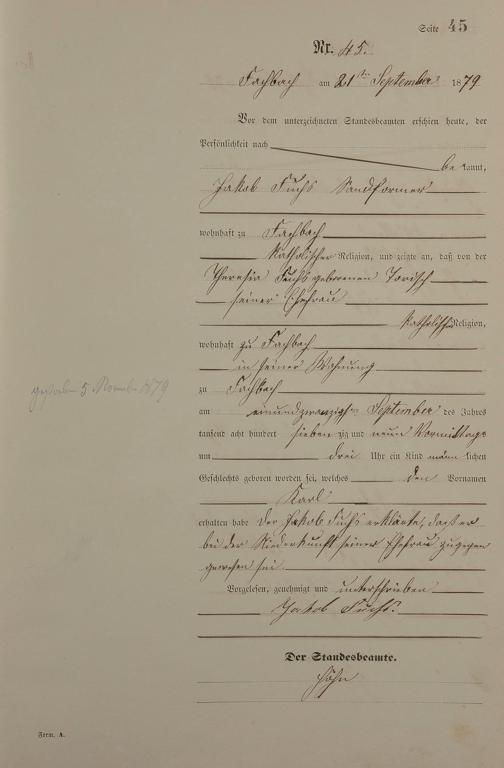 Seite 45
Nr. 45.
Fachbach am 21ten September 1879
Vor dem unterzeichneten Standesbeamten erschien heute, der
Persönlichkeit nach
be kannt,
Jakob Fuchs Sandformer
wohnhaft zu Fachbach
katholischer Religion, und zeigte an, daß von der
Theresia Fuchs geborenen
seiner Ehefrau
katholischer Religion,
wohnhaft zu Fachbach
in seiner Wohnung
zu Fachbach
gestorben 5 November 1879
am einundzwanzigsten September des Jahres
tausend acht hundert siebenzig und neun Vormittags
um drei Uhr ein Kind männlichen
Geschlechts geboren worden sei, welches den Vornamen
Karl
erhalten habe Der Jakob Fuchs erklärte, daß er
bei der Niederkunft seiner Ehefrau zugegen
gewesen sei
Vorgelesen, genehmigt und unterschrieben
Jakob Fuchs.
Der Standesbeamte.
Höhn
Form. A.